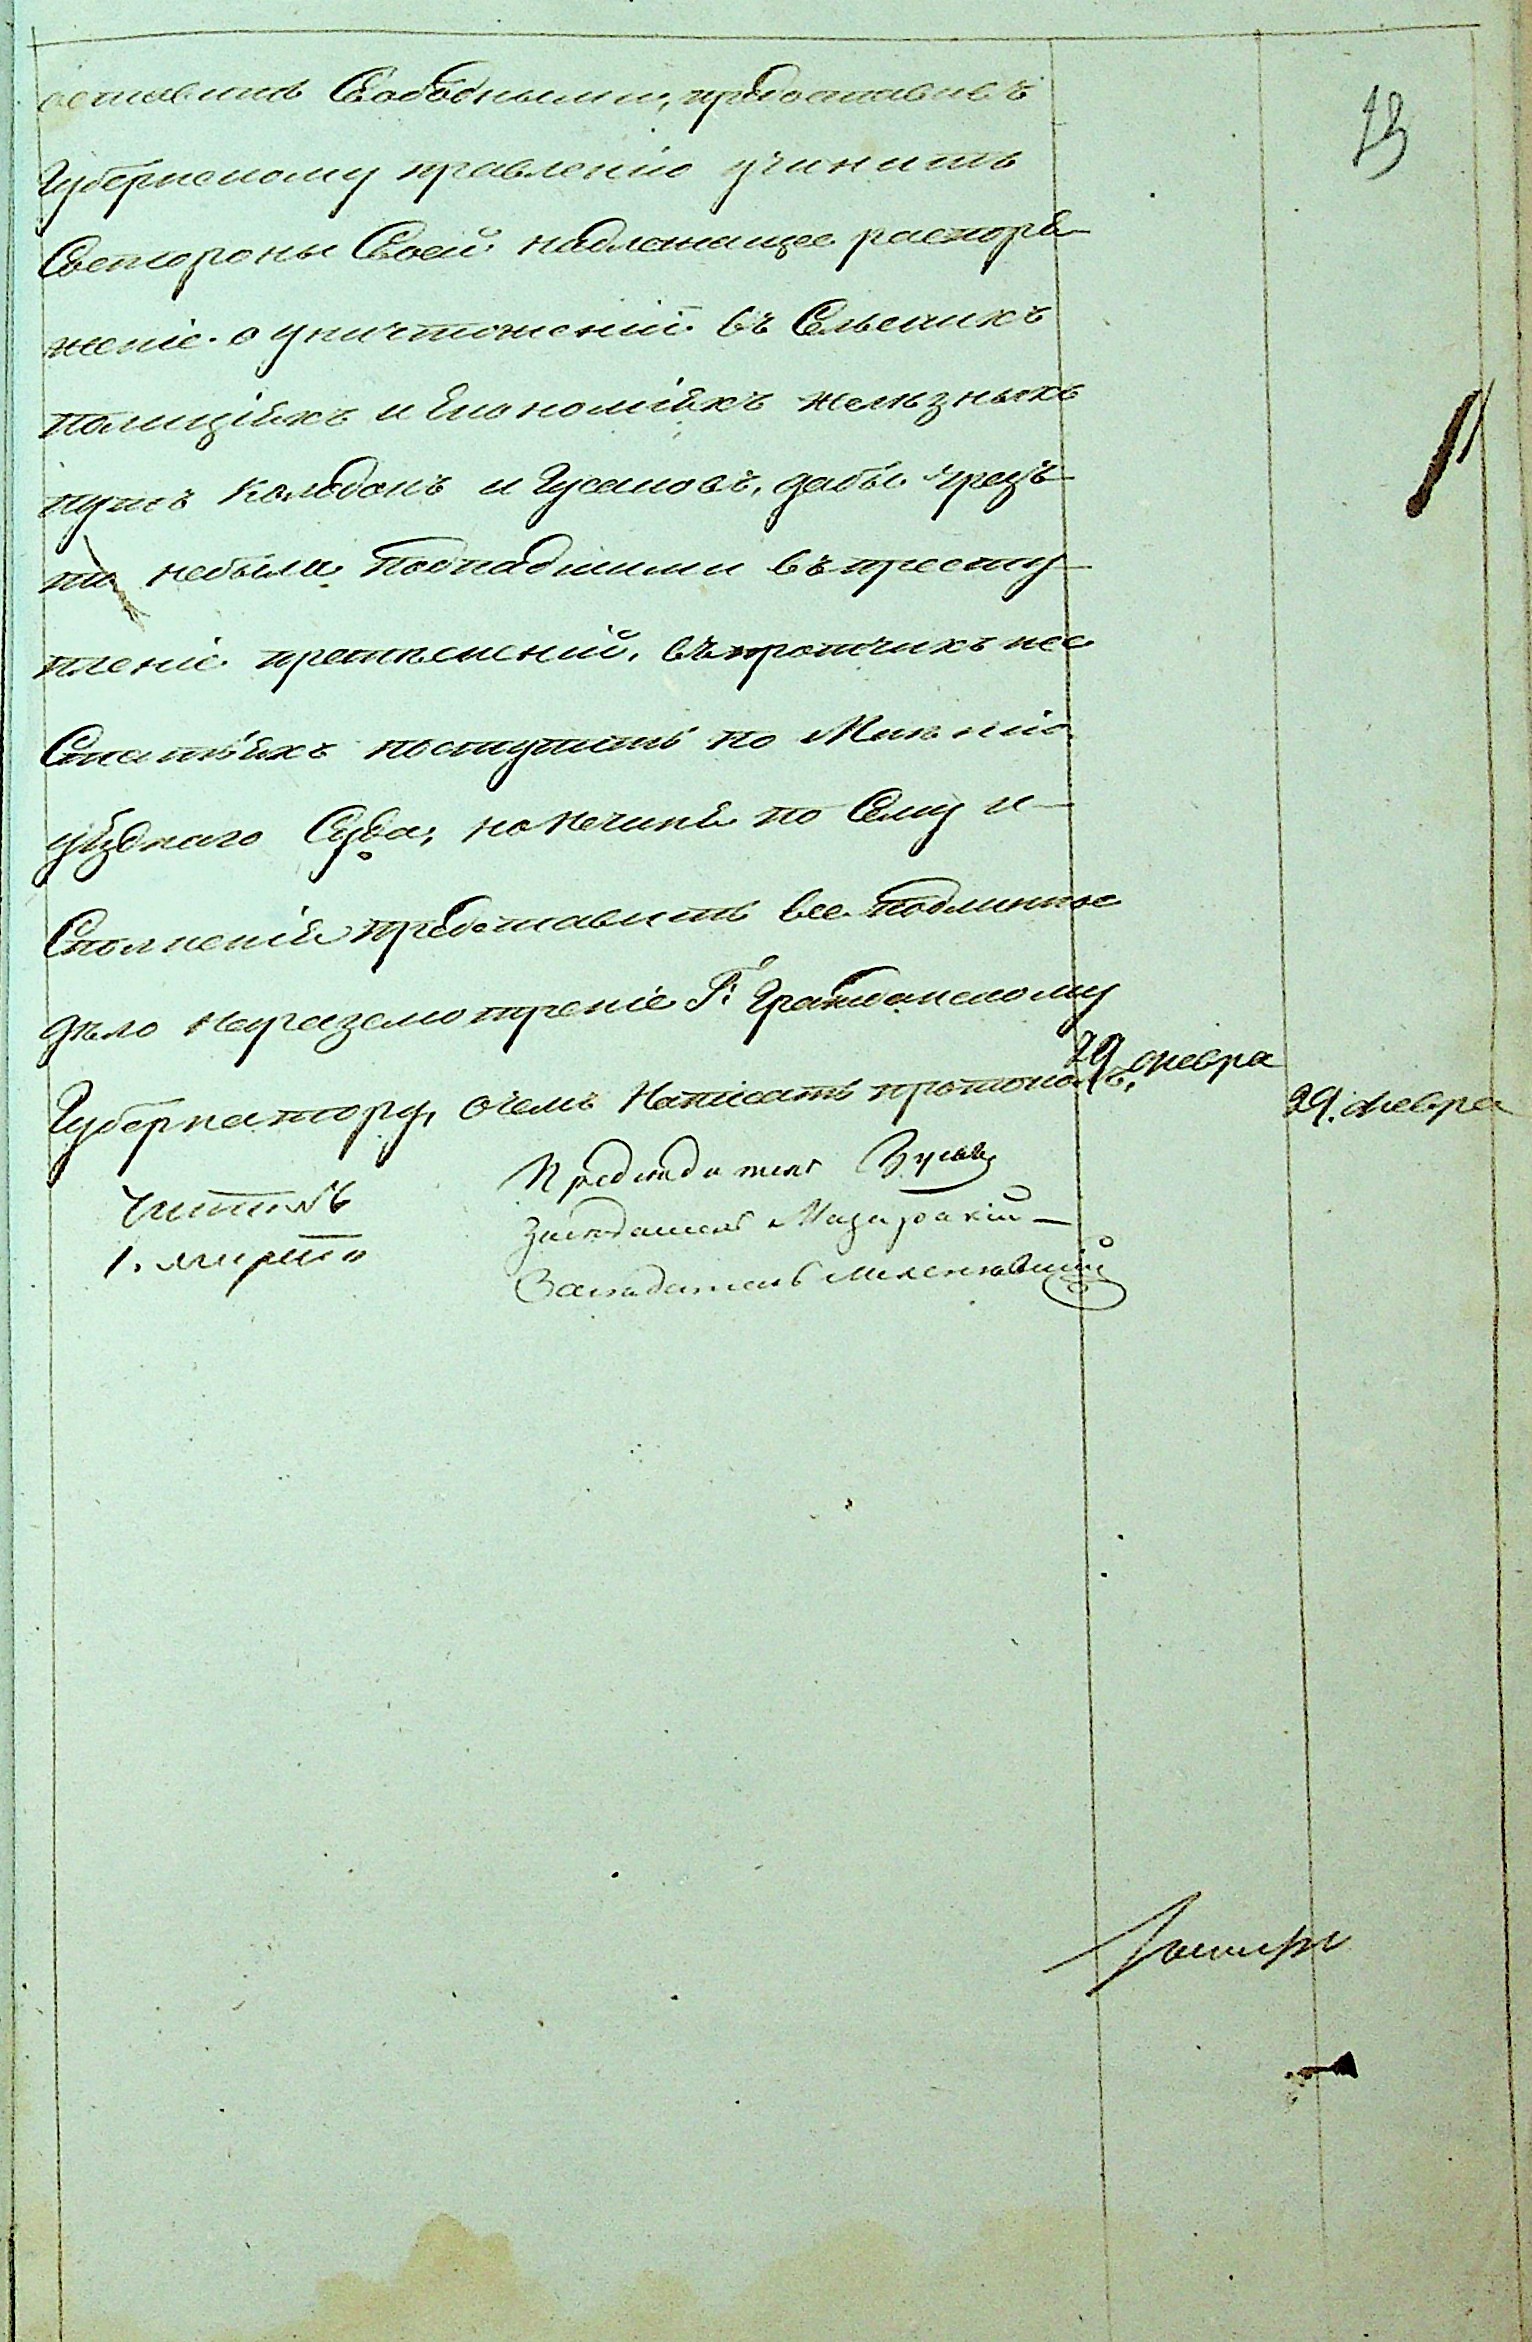 13
оставить Свободными, предоставивъ
Губернскому правленію учинить
Состороны Своей надлежащее распоря
женіе о уничтоженій въ Сельскихъ
полицiяхъ и Економіяхъ желѣзныхъ
путъ колодокъ и Гусаковъ, дабы чрезъ
то небыли подпадшими въ престу
пленіе претѣсненій, въпротчихъ же
Статьяхъ поступить по Мнѣнію
уѣзднаго Суда, но Нечиня по Сему и
Сполненія представить все подлинное
дѣло наразсмотреніе Г. Гражданскому
Губернатору, очемъ Написать протоколъ,
29. февра
29. февра
Читалъ
1. марта
Председатель
Заседатель
Заседатель